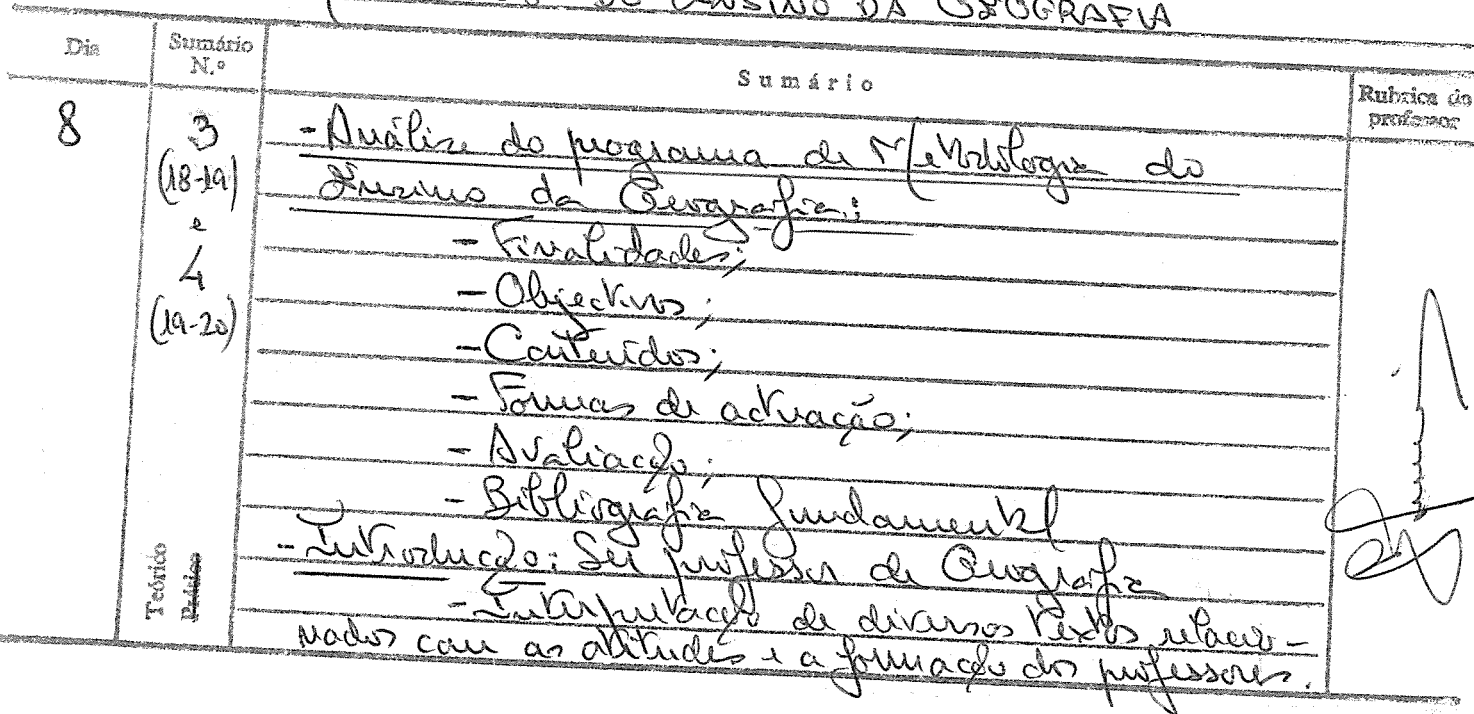 DO ENSINO DA GEOGRAFIA
Dia
Sumário N.º
Sumário
Rubrica do professor
8
3
(18-19)
e
4
(19-20)
Teórico
Prático
- Análise do programa de Metodologia do
Ensino da Geografia:
- Finalidades;
- Objectivos;
- Conteúdos;
- Formas de actuação;
- Avaliação;
- Bibliografia fundamental
- Introdução: Ser professor de Geografia
- Interpretação de diversos textos relacio-
nados com as atitudes e a formação dos professores.